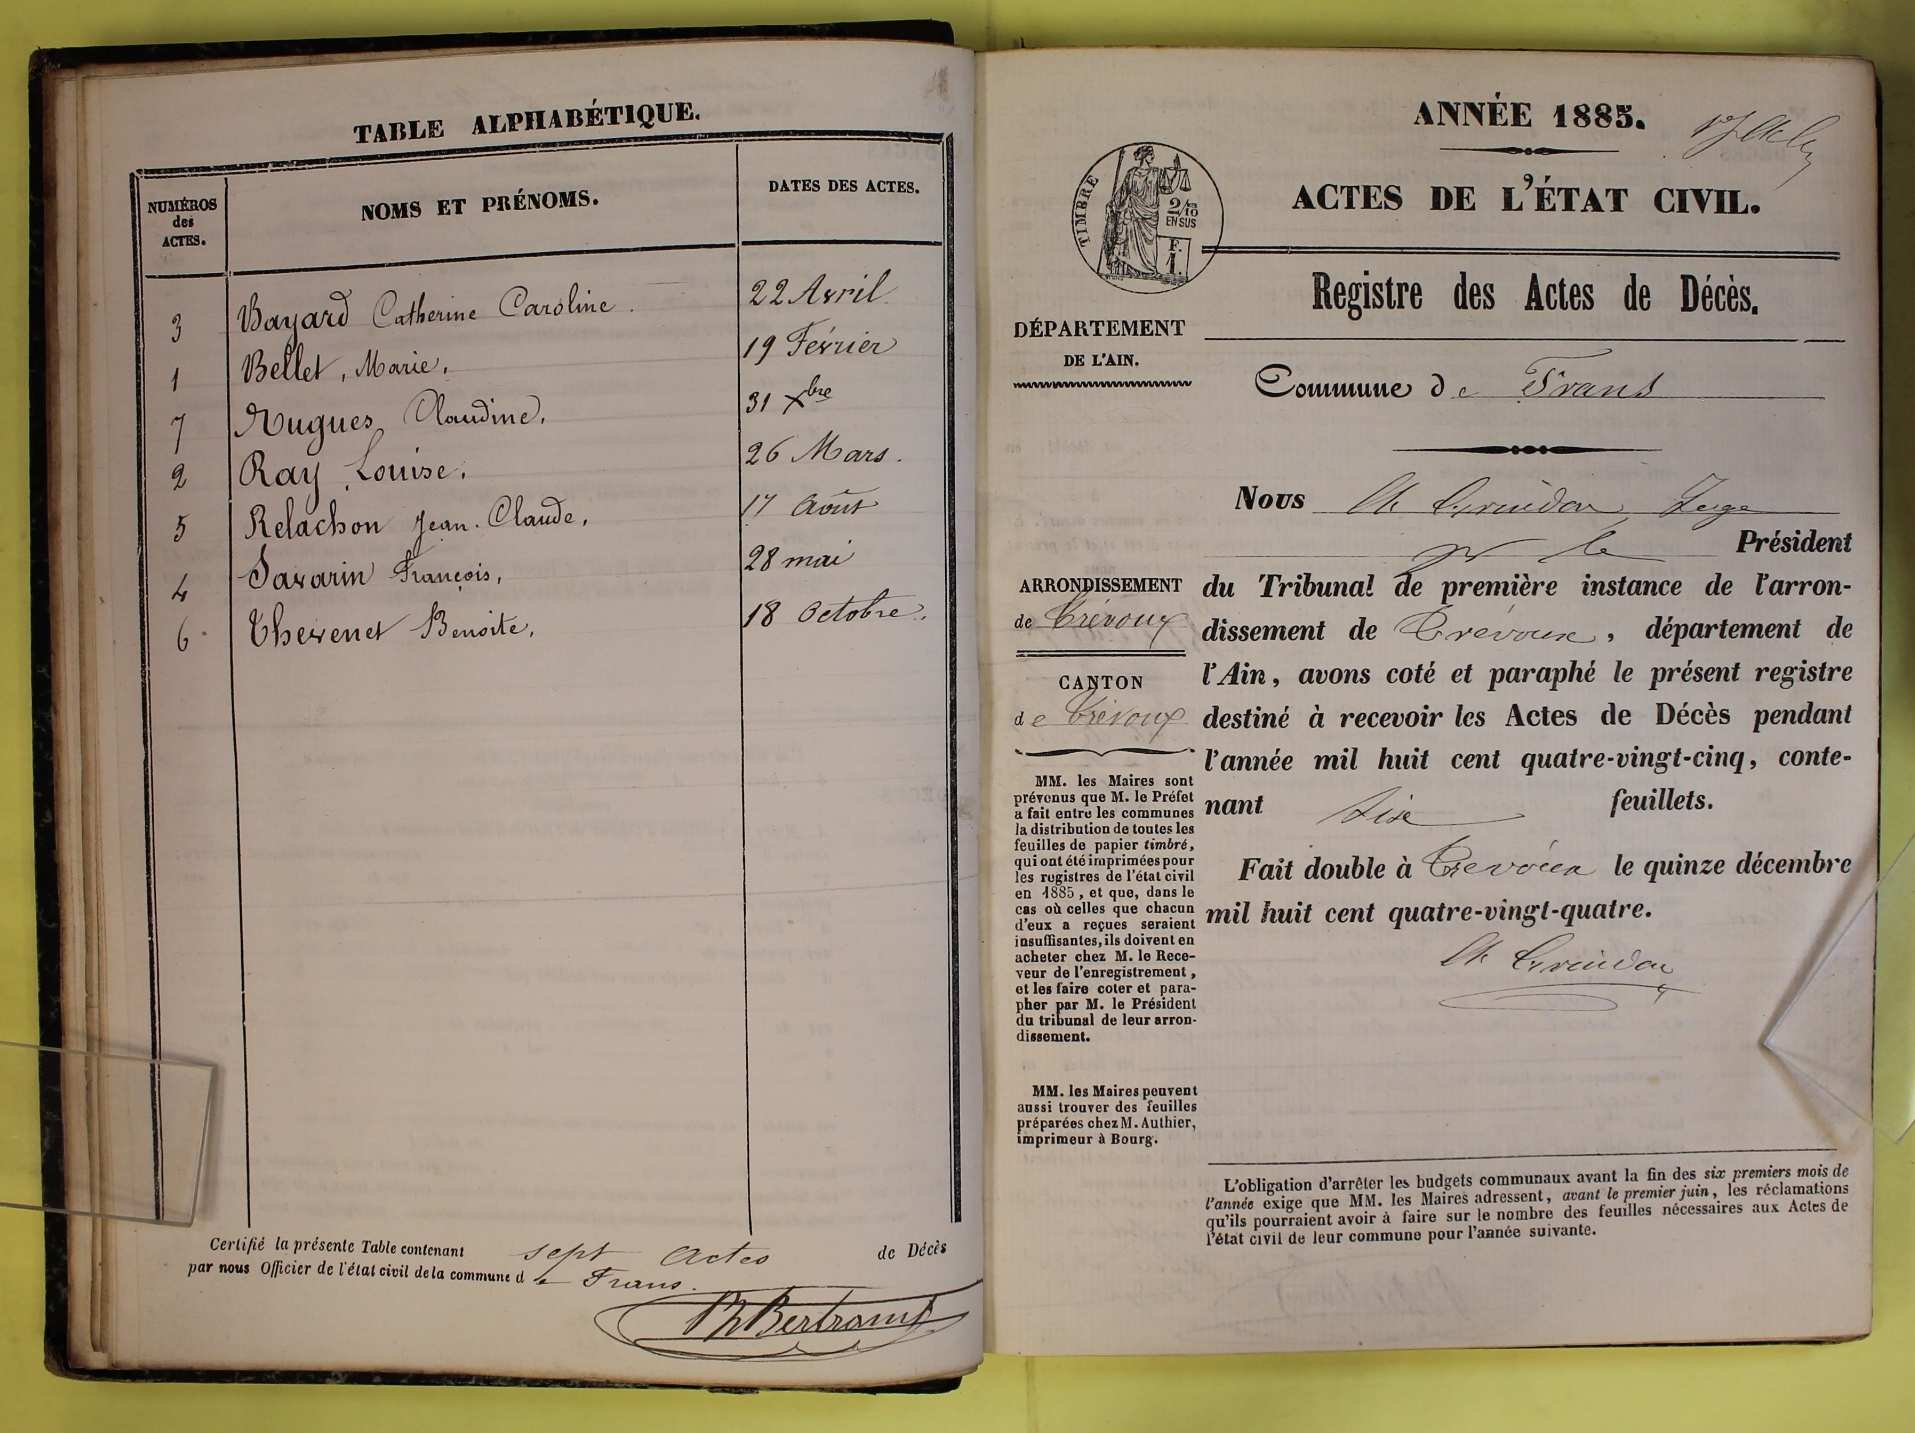 TABLE ALPHABÉTIQUE.
NUMÉROS
des
ACTES.
NOMS ET PRÉNOMS.
DATES DES ACTES.
3 Bayard Catherine Caroline. 22 Avril.
1 Bellet, Marie, 19 Février
7 Hugues Claudine, 31 Xbre
2 Ray Louise, 26 Mars.
5 Relachon Jean-Claude, 17 Août
4 Savarin François, 28 mai
6 Thevenet Benoite, 18 Octobre.
Certifié la présente Table contenant sept Actes de Décès
par nous Officier de l'état civil de la commune de Frans.
Bertrand
ANNÉE 1885.
ACTES DE L'ÉTAT CIVIL.
TIMBRE
2/10
EN SUS
F.
1.
Registre des Actes de Décès.
DÉPARTEMENT
DE L'AIN.
Commune de Frans
Nous
le Président
ARRONDISSEMENT
de Trévoux
CANTON
de Trévoux
du Tribunal de première instance de l'arron-
dissement de Trévoux, département de
l'Ain, avons coté et paraphé le présent registre
destiné à recevoir les Actes de Décès pendant
l'année mil huit cent quatre-vingt-cinq, conte-
nant six feuillets.
Fait double à Trévoux le quinze décembre
mil huit cent quatre-vingt-quatre.
MM. les Maires sont
prévenus que M. le Préfet
a fait entre les communes
la distribution de toutes les
feuilles de papier timbré,
qui ont été imprimées pour
les registres de l'état civil
en 1885, et que, dans le
cas où celles que chacun
d'eux a reçues seraient
insuffisantes, ils doivent en
acheter chez M. le Rece-
veur de l'enregistrement,
et les faire coter et para-
pher par M. le Président
du tribunal de leur arron-
dissement.
MM. les Maires peuvent
aussi trouver des feuilles
préparées chez M. Authier,
imprimeur à Bourg.
L'obligation d'arrêter les budgets communaux avant la fin des six premiers mois de
l'année exige que MM. les Maires adressent, avant le premier juin, les réclamations
qu'ils pourraient avoir à faire sur le nombre des feuilles nécessaires aux Actes de
l'état civil de leur commune pour l'année suivante.